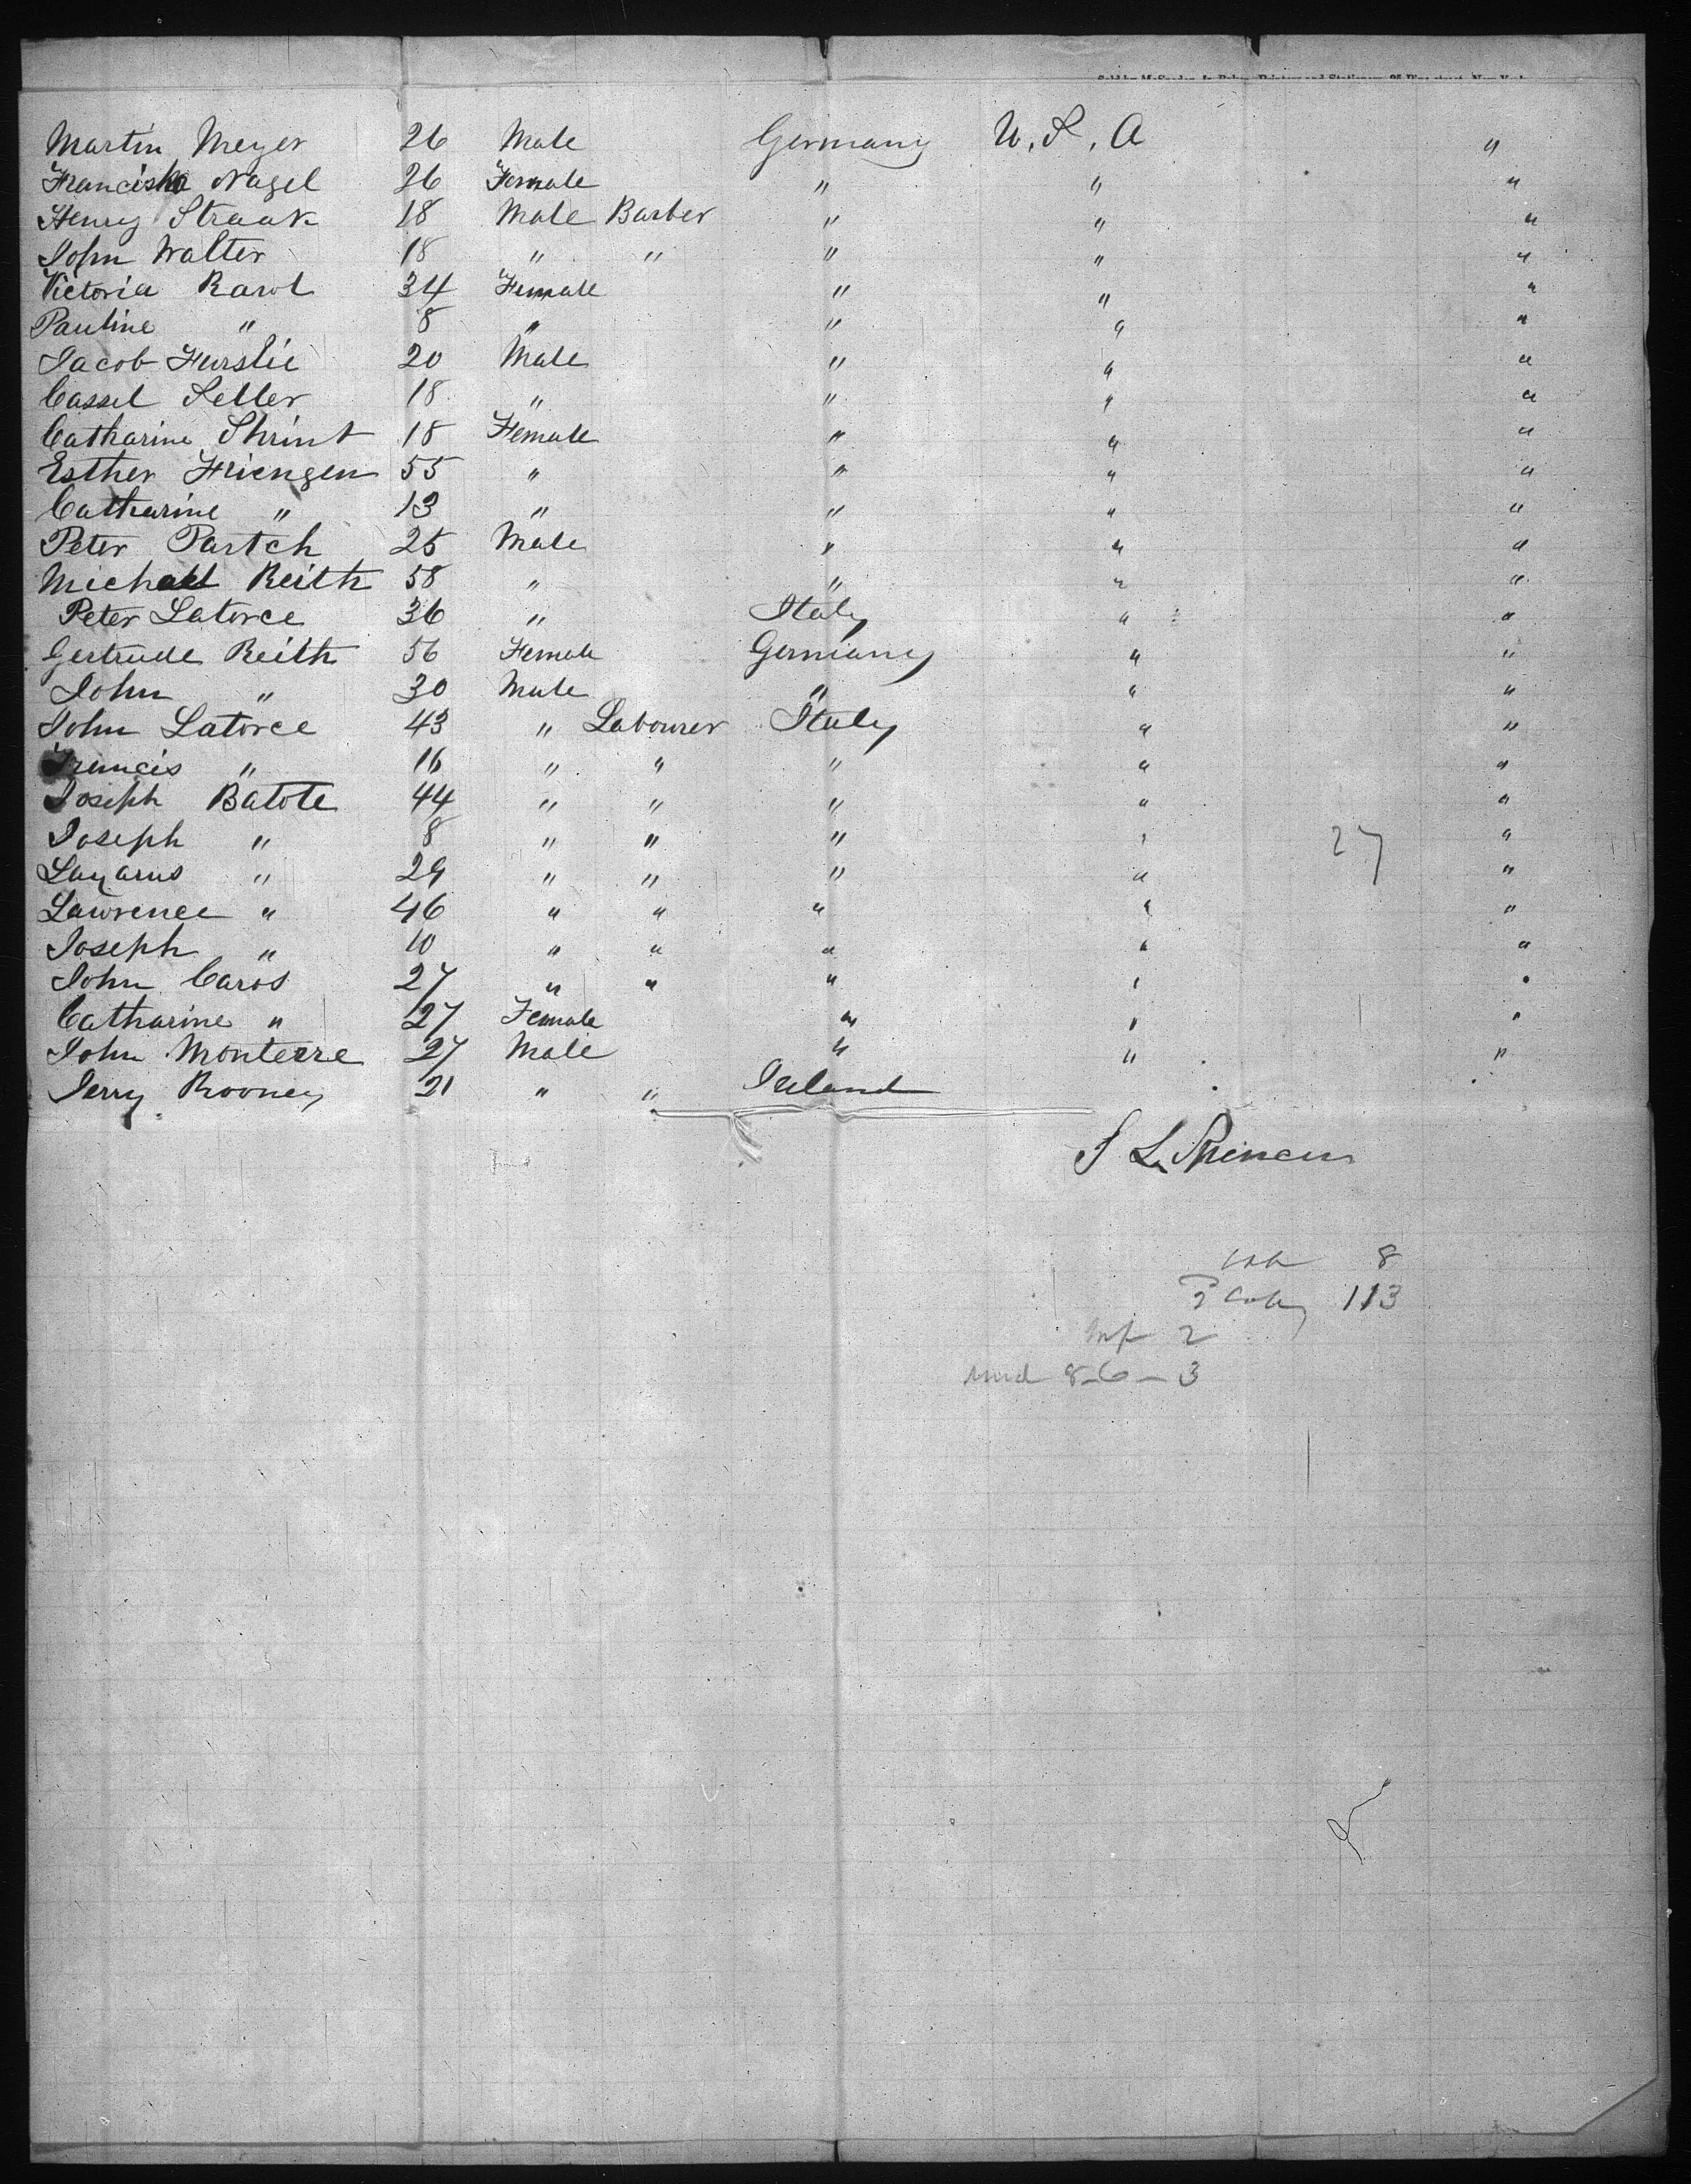 Martin Meyer 26 Male Germany U. S. A "
Franciska Nagel 26 Female " " "
Henry Straak 18 Male Barber " " "
John Walter 18 " " " " "
Victoria Rawl 34 Female " " "
Pauline " 8 " " " "
Jacob Furslie 20 Male " " "
Cassel Seller 18 " " " "
Catharine Shrint 18 Female " " "
Esther Friengen 55 " " " "
Catharine " 13 " " " "
Peter Partch 25 Male " " "
Michael Reith 58 " " " "
Peter Latorce 36 " Italy " "
Gertrude Reith 56 Female Germany " "
John " 30 Male " " "
John Latorce 43 " Labourer Italy " "
Francis " 16 " " " " "
Joseph Batote 44 " " " " "
Joseph " 8 " " " " 27 "
Lazarus " 29 " " " " "
Lawrence " 46 " " " " "
Joseph " 10 " " " " "
John Caros 27 " " " " "
Catharine " 27 Female " " "
John Monterre 27 Male " " "
Jerry Rooney 21 " " Ireland
S L
8
113
Inf 2
8-6-3